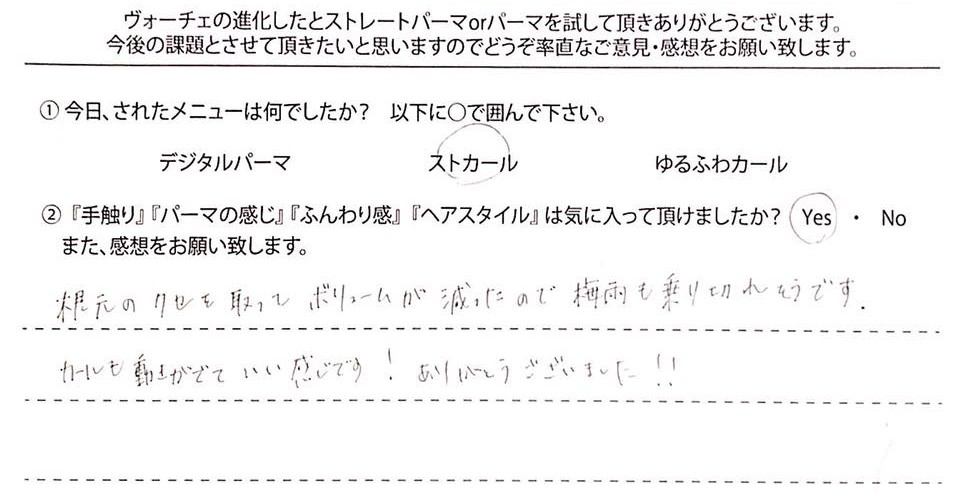 ヴォーチェの進化したとストレートパーマorパーマを試して頂きありがとうございます。
今後の課題とさせて頂きたいと思いますのでどうぞ率直なご意見・感想をお願い致します。
① 今日、されたメニューは何でしたか？ 以下に○で囲んで下さい。
デジタルパーマ ストカール ゆるふわカール
② 『手触り』『パーマの感じ』『ふんわり感』『ヘアスタイル』は気に入って頂けましたか？ Yes ・ No
また、感想をお願い致します。
根元のクセも取ってボリュームが減ったので梅雨も乗り切れそうです.
カールも動きがでていい感じです！ ありがとうございました!!